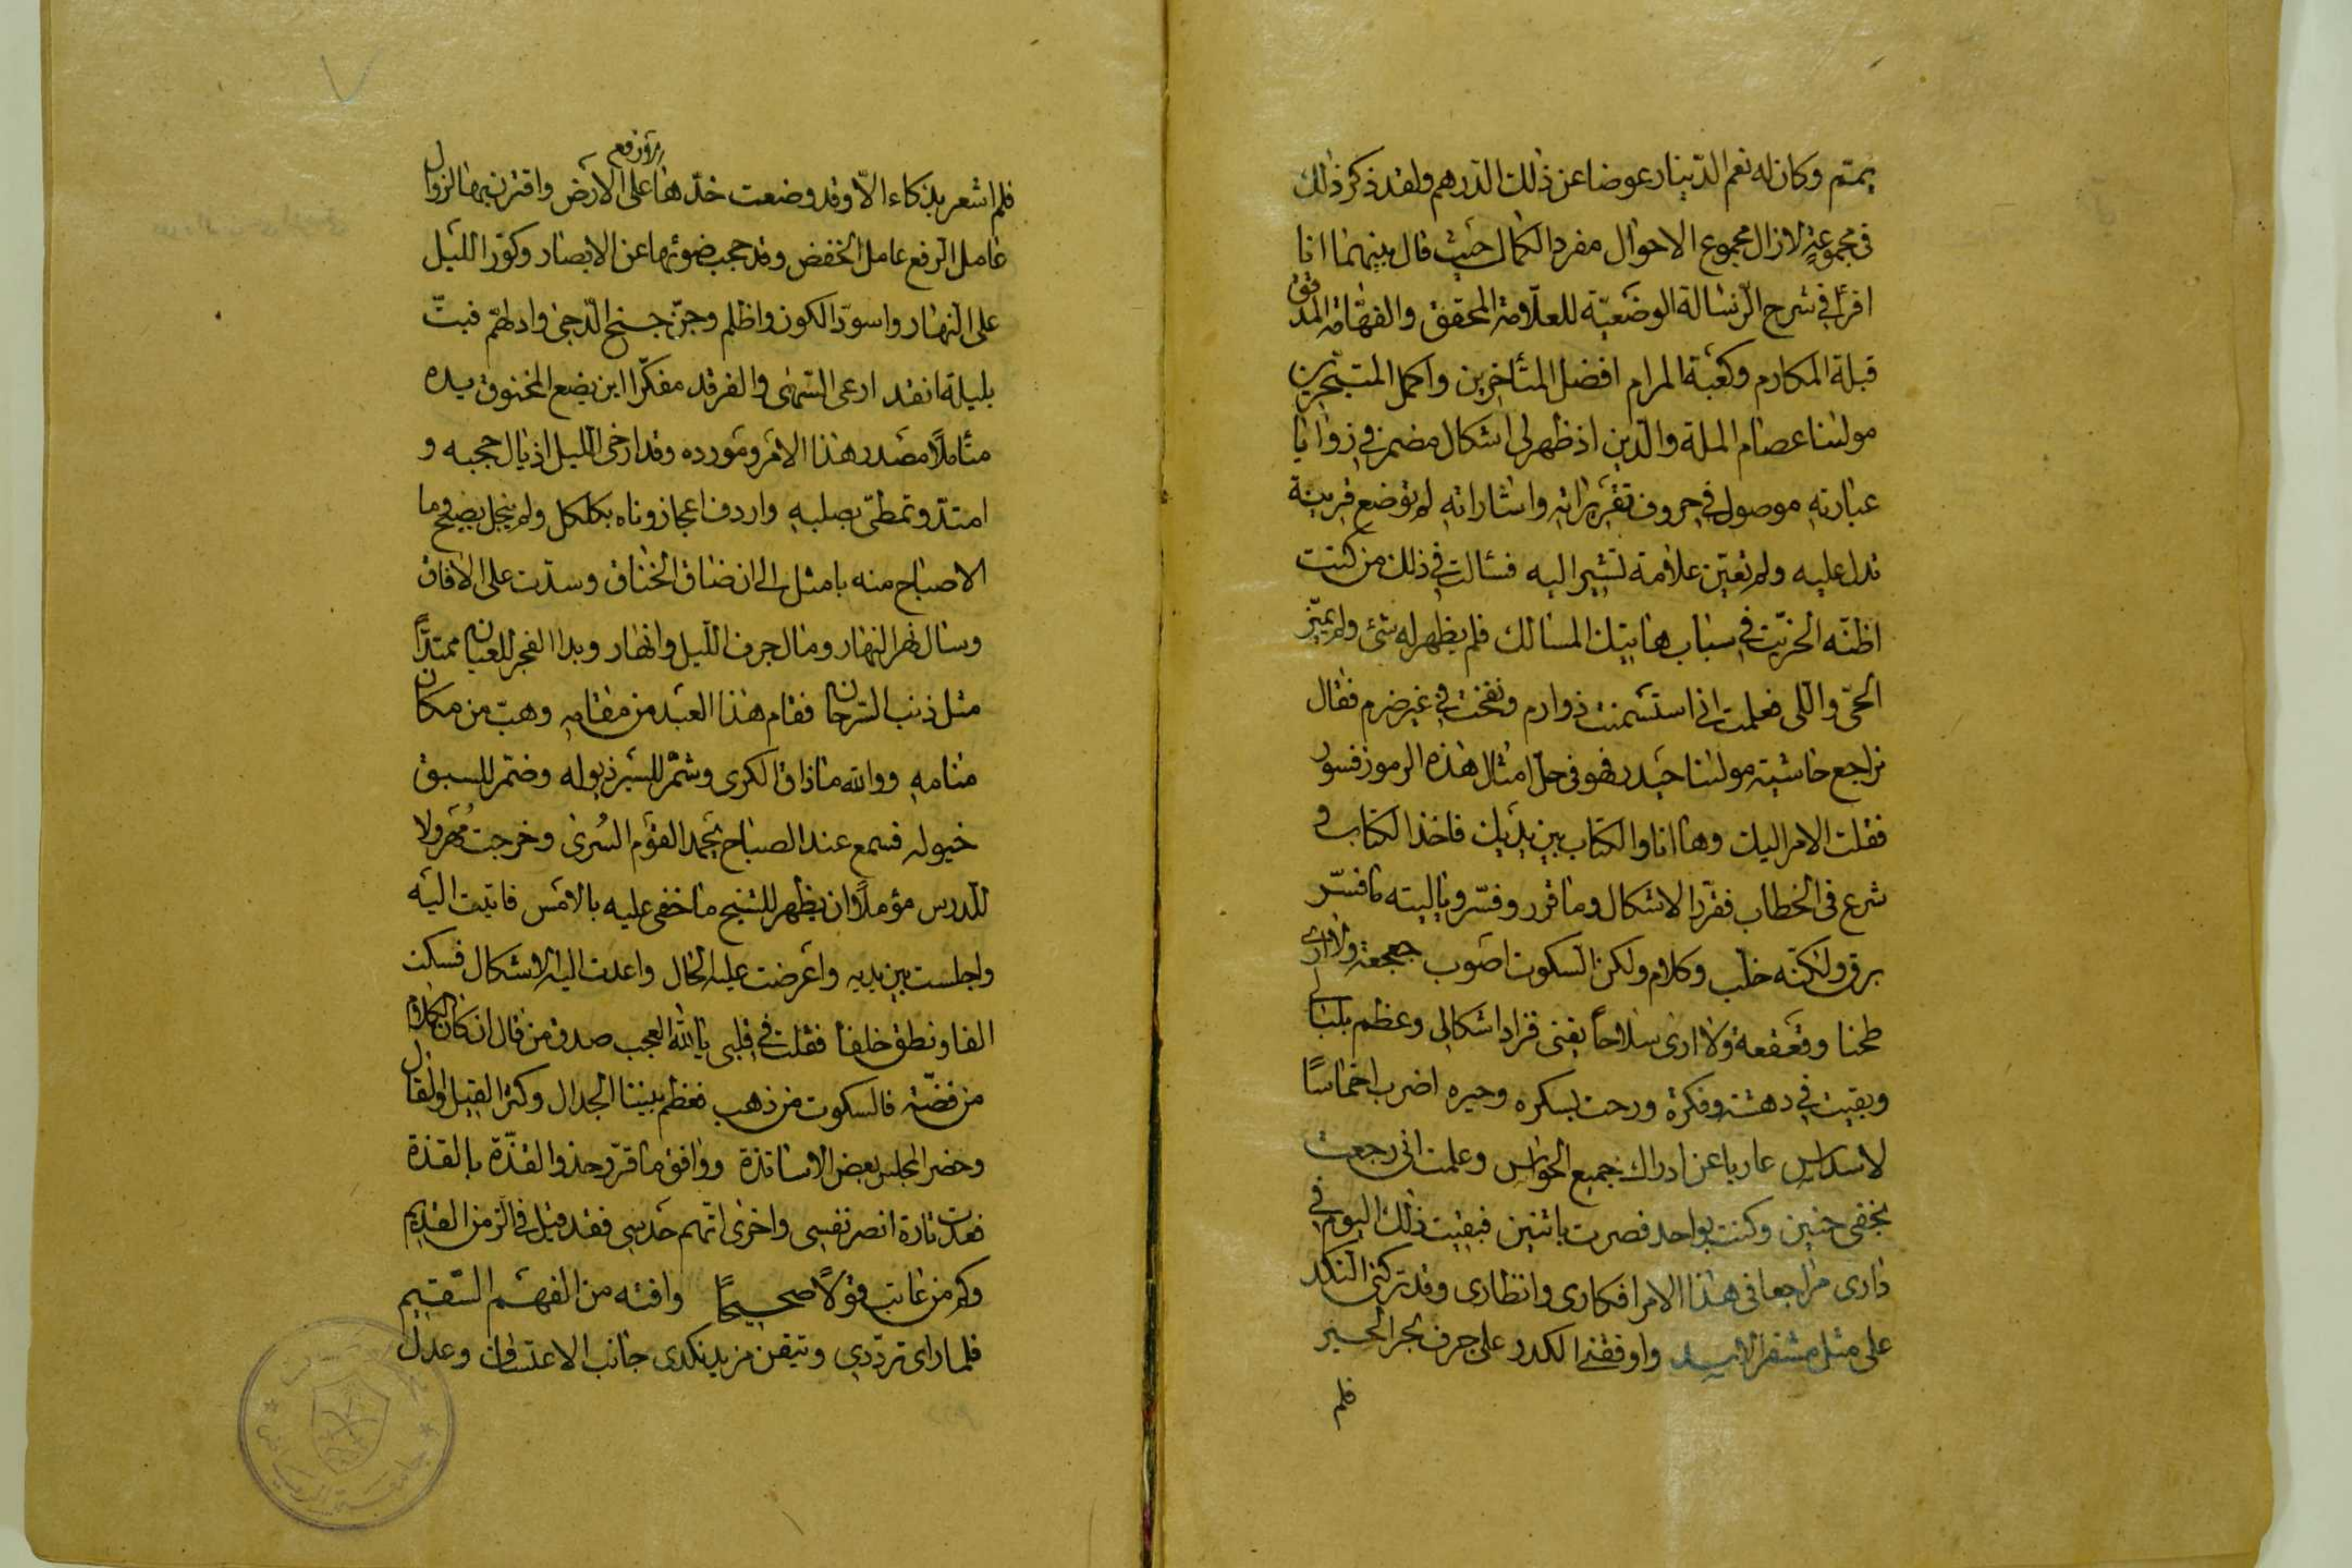 يمتم وكان له نعم الدينار عوضا عن ذلك الدرهم ولقد ذكر ذلك
في مجموعته لازال مجموع الاحوال مفرد الكمال حيث قال بينهما انا
اقرأ في شرح الرسالة الوضعية للعلامة المحقق والفهامة المدقق
قبلة المكارم وكعبة المرام افضل المتأخرين واكمل المتبحرين
مولينا عصام الملة والدين اذ ظهر لي اشكال مضمر في زوايا
عبارته موصول في حروف تقريراته واشاراته لم توضع قرينة
تدل عليه ولم تعين علامة تشير اليه فسئالت في ذلك من كنت
اظنه الخريت في سباب هاتيك المسالك فلم يظهر له شئ ولم يميز
الحي والللى فعلمت اني استسمنت ذو ارم ونفخت في غير ضرم فقال
نراجع حاشية مولينا حيدر فهو في حل امثال هذه الرموز قسور
فقلت الامر اليك وها انا والكتاب بين يديك فاخذ الكتاب و
شرع في الخطاب فقرر الاشكال وما قرر وفسر وياليته ما فسر
برق ولكنه خلب وكلام ولكن السكوت اصوب جعجعة ولا ارى
طحنا وقعقعة ولا ارى سلاحاً يغنى فزاد اشكالي وعظم بلبالي
وبقيت في دهشة وفكرة ورحت بسكره وحيره اضرب اخماسًا
لاسداس عاريا عن ادراك جميع الحواس وعلمت اني رجعت
بخفي حنين وكنت بواحد فصرت باثنين فبقيت ذلك اليوم في
داري مراجعا في هذا الامر افكاري وانظاري وقد تركني النكد
على مثل مشفر الاسد واوقفني الكدر على جرف بحر الحسير
فلم
فلم اشعر بذكاء الّا وقد وضعت خدّها على الارض واقترن بها لزوال
رؤ رفع
عامل الرفع عامل الخفض وقد حجب ضوئها عن الابصار وكوّر الليل
على النهار واسودّ الكون واظلم وجنّ جنح الدّجى وادلهمّ فبتّ
بليلة انقد ارعى السهى والفرقد مفكّرا اين يضع المخنوق يده
متأملًا مصدر هذا الامر ومورده وقد ارخى الليل اذيال حجبه و
امتد وتمطّى بصلبه واردف اعجازوناه بكلكل ولم ينجل بصبح وما
الاصباح منه بامثل الى ان ضاق الخناق وسدّت على الافاق
وسال نهر النهار ومال جرف الليل وانهار وبدا الفجر للعيان ممتدًّا
مثل ذنب السرحان فقام هذا العبد من مقامه وهبّ من مكان
منامه ووالله ما ذاق الكرى وشمّر للسير ذيوله وضمّر للسبق
خيوله فسمع عند الصباح يحمد القوم السُرى وخرجت مُهرولا
للدرس مؤملًا ان يظهر للشيخ ما خفي عليه بالامس فاتيت اليه
واجلست بين يديه واعرضت عليه الحال واعدت اليه الاشكال فسكت
الفا ونطق خلفا فقلت في قلبي يا لله العجب صدق من قال ان كان الكلام
من فضّة فالسكوت من ذهب فعظم بيننا الجدال وكثر القيل والقال
وحضر المجلس بعض الاساتذة ووافق ما قرّر حذو القذّة بالقذة
فعدت تارة انصر نفسي واخرى اتّهم حدسي فقد قيل في الزمن القديم
وكم من عائب قولًا صحيحًا وافته من الفهم السّقيم
فلما راى تردّدي وتيقن مزيد نكدى جانب الاعتساف وعدل
جامعة الرياض